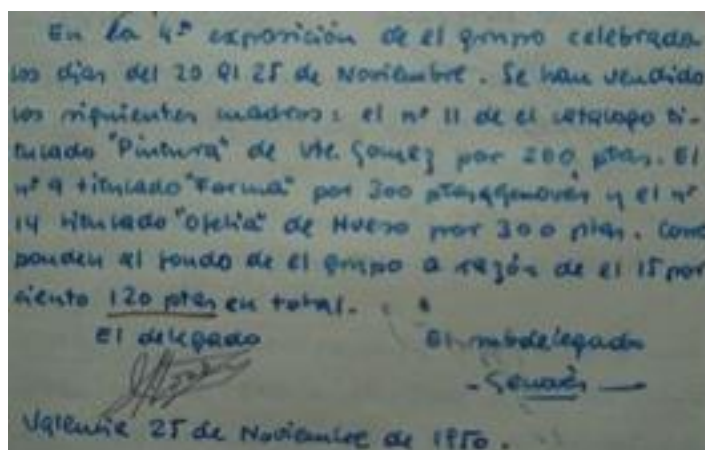 En la 4ª exposición de el grupo celebrada
los dias del 20 al 25 de Noviembre. Se han vendido
los siguientes cuadros: el nº 11 de el catalogo ti-
tulado "Pintura" de Vte. Gomez por 200 ptas. El
nº 9 titulado "Forma" por 300 ptas Genovés y el nº
14 titulado "Ofelia" de Hueso por 300 ptas. Corres
ponden al fondo de el grupo a razón de el 15 por
ciento 120 ptas en total.
El delegado El subdelegado
Genovés
Valencia 25 de Noviembre de 1950.